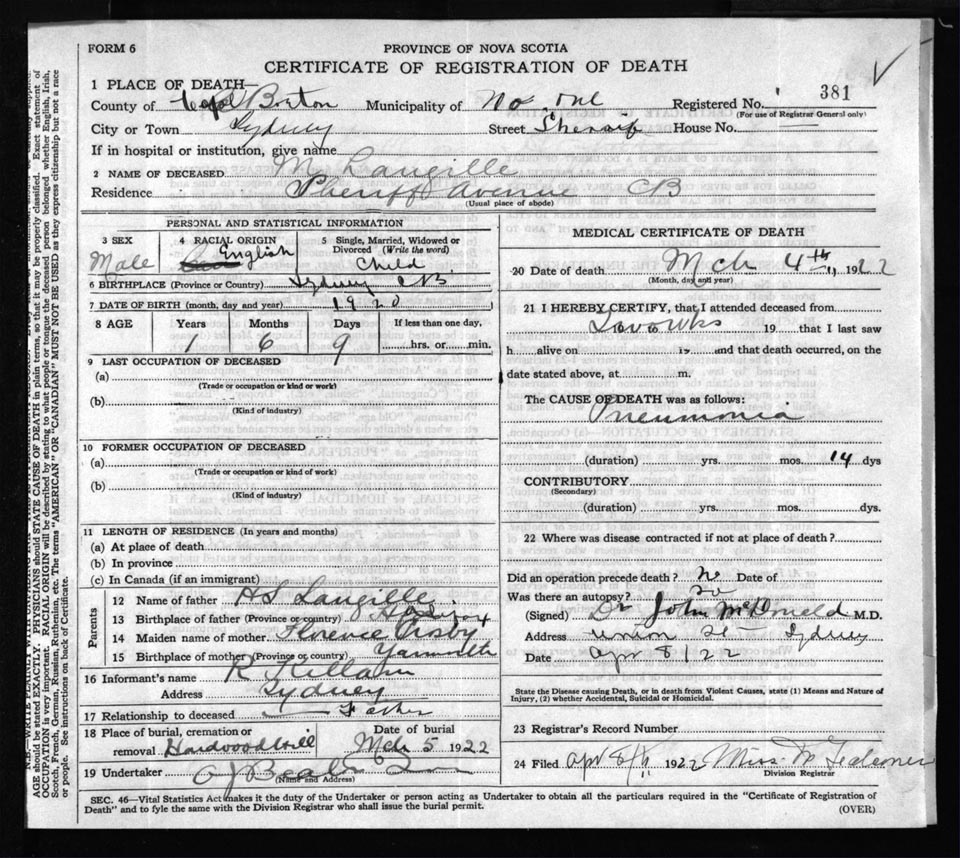 FORM 6
PROVINCE OF NOVA SCOTIA
CERTIFICATE OF REGISTRATION OF DEATH
1 PLACE OF DEATH—
County of Cape Breton Municipality of No one Registered No. 381
(For use of Registrar General only)
City or Town Sydney Street Sheriff House No. —
If in hospital or institution, give name
2 NAME OF DECEASED M. Langille
Residence Sheriff Avenue CB
(Usual place of abode)
PERSONAL AND STATISTICAL INFORMATION
3 SEX Male
4 RACIAL ORIGIN English
5 Single, Married, Widowed or Divorced (Write the word) Child
6 BIRTHPLACE (Province or Country) Sydney CB
7 DATE OF BIRTH (month, day and year) 1920
8 AGE Years Months Days If less than one day,
1 6 9 hrs. or min.
9 LAST OCCUPATION OF DECEASED
(a)
(Trade or occupation or kind or work)
(b)
(Kind of industry)
10 FORMER OCCUPATION OF DECEASED
(a)
(Trade or occupation or kind or work)
(b)
(Kind of industry)
11 LENGTH OF RESIDENCE (In years and months)
(a) At place of death
(b) In province
(c) In Canada (if an immigrant)
Parents
12 Name of father Langille
13 Birthplace of father (Province or country)
14 Maiden name of mother Florence Crosby
15 Birthplace of mother (Province or country) Yarmouth
16 Informant's name R Killam
Address Sydney
17 Relationship to deceased — Father
18 Place of burial, cremation or removal Hardwood Hill
Date of burial Mch 5 1922
19 Undertaker
(Name and Address)
MEDICAL CERTIFICATE OF DEATH
20 Date of death Mch 4th 1922
(Month, day and year)
21 I HEREBY CERTIFY, that I attended deceased from
19 that I last saw
h alive on 19 and that death occurred, on the
date stated above, at m.
The CAUSE OF DEATH was as follows:
Pneumonia
(duration) yrs. mos. 14 dys
CONTRIBUTORY
(Secondary)
(duration) yrs. mos. dys.
22 Where was disease contracted if not at place of death?
Did an operation precede death? No Date of
Was there an autopsy?
(Signed) Dr John McDonald M.D.
Address Union St — Sydney
Date Apr 8/22
State the Disease causing Death, or in death from Violent Causes, state (1) Means and Nature of
Injury, (2) whether Accidental, Suicidal or Homicidal.
23 Registrar's Record Number
24 Filed Apr 8th 1922 Miss
Division Registrar
SEC. 46—Vital Statistics Act makes it the duty of the Undertaker or person acting as Undertaker to obtain all the particulars required in the "Certificate of Registration of
Death" and to fyle the same with the Division Registrar who shall issue the burial permit.
(OVER)
AGE should be stated EXACTLY. PHYSICIANS should STATE CAUSE OF DEATH in plain terms, so that it may be properly classified. Exact statement of
OCCUPATION is very important. RACIAL ORIGIN will be described by stating to what people or tongue the deceased person belonged whether English, Irish,
Scotch, French, German, Russian, Ruthenian, etc. The terms "AMERICAN" OR "CANADIAN" MUST NOT BE USED as they express citizenship but not a race
or people. See instructions on back of Certificate.